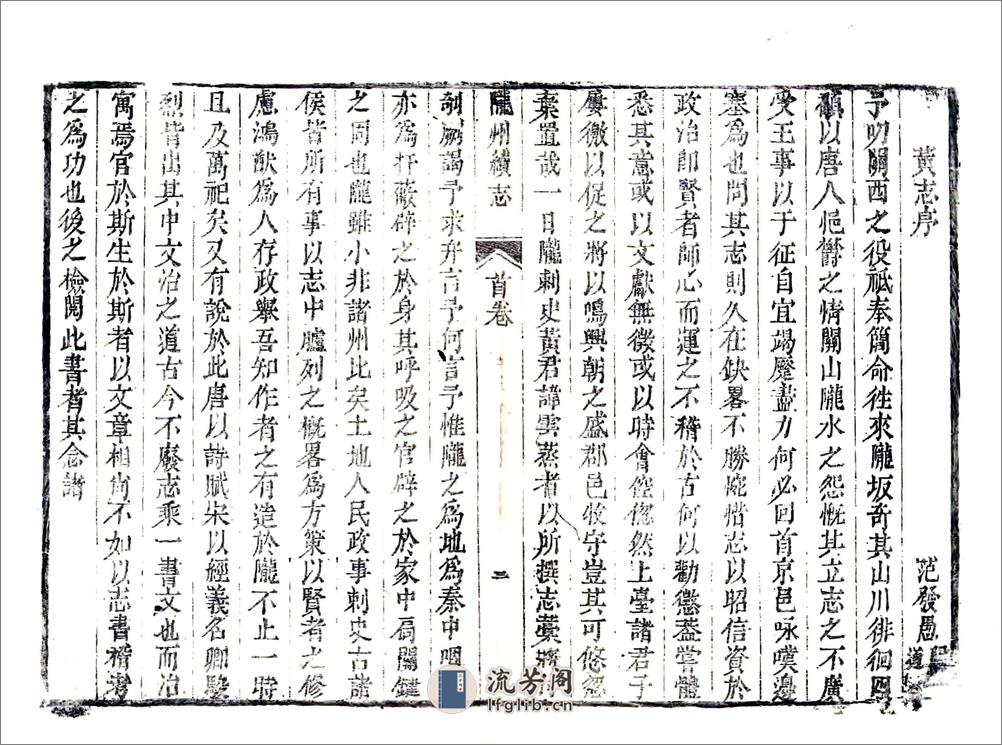 黃志序
范發愚 道
予叨關西之役祗奉簡命徃來隴坂奇其山川徘徊四
顧以唐人悒鬱之情關山隴水之怨慨其立志之不廣
受王事以于征自宜竭蹷盡力何必回首京邑咏嘆邊
塞爲也問其志則久在缺畧不勝惋惜志以昭信資於
政治卽賢者師心而運之不稽於古何以勸懲葢嘗體
悉其意或以文獻無徵或以時會倥偬然上臺諸君子
屢檄以促之將以鳴興朝之盛郡邑牧守豈其可悠忽
棄置哉一日隴刺史黃君諱雲蒸者以所撰志藁將
隴州續志
首卷
二
剞劂謁予求弁言予何言予惟隴之爲地爲秦中咽
亦爲扞蔽辟之於身其呼吸之官辟之於家中扃關鍵
之固也隴雖小非諸州比矣土地人民政事刺史古諸
侯皆所有事以志中臚列之慨畧爲方策以賢者之修
慮鴻猷爲人存政舉吾知作者之有造於隴不止一時
且及萬祀矣又有說於此唐以詩賦宋以經義名卿駿
烈皆出其中文治之道古今不廢志乘一書文也而冶
寓焉官於斯生於斯者以文章相尚不如以志書稽考
之爲功也後之檢閱此書者其念諸
流芳阁
lfglib.cn